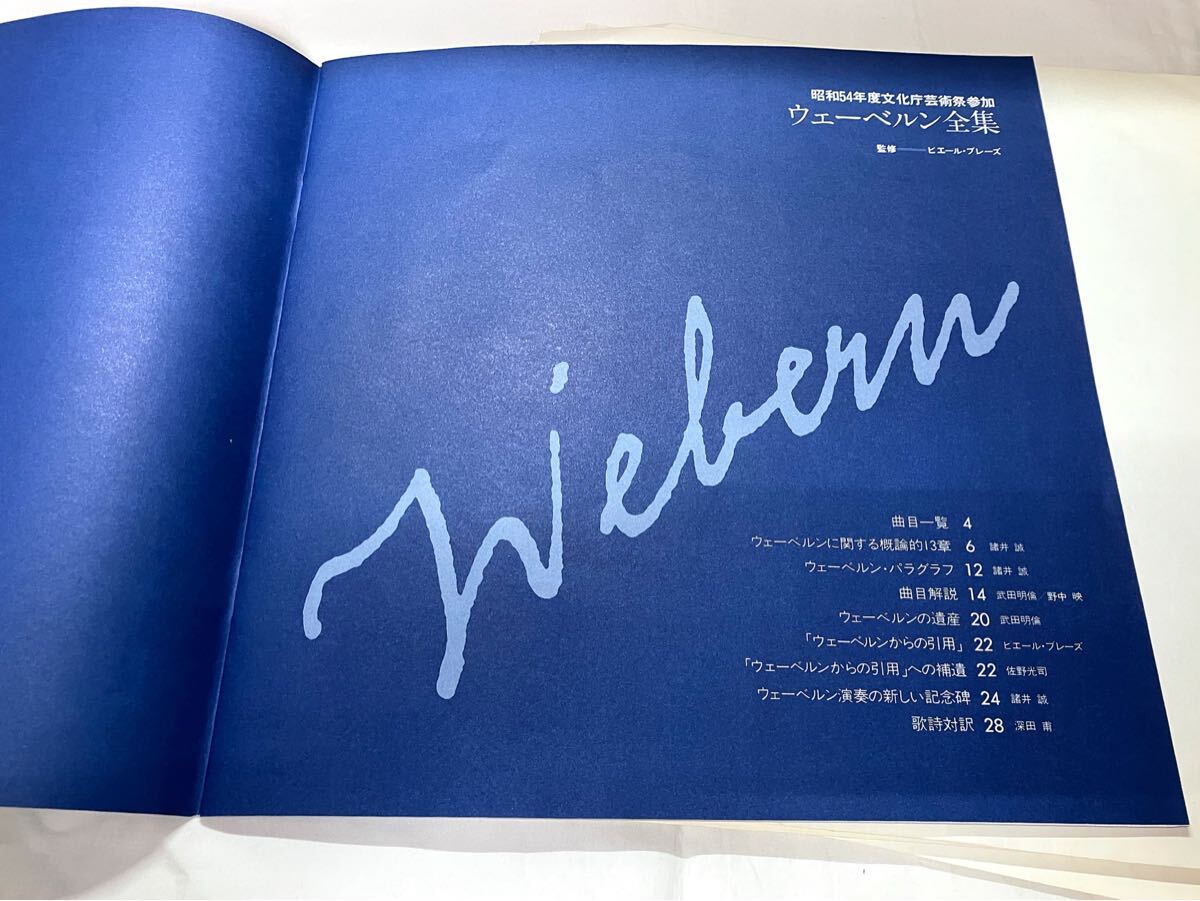 昭和54年度文化庁芸術祭参加
ウェーベルン全集
監修――ピエール・ブレーズ
Webern
曲目一覧 4
ウェーベルンに関する概論的13章 6 諸井 誠
ウェーベルン・パラグラフ 12 諸井 誠
曲目解説 14 武田明倫/野中 映
ウェーベルンの遺産 20 武田明倫
「ウェーベルンからの引用」 22 ピエール・ブレーズ
「ウェーベルンからの引用」への補遺 22 佐野光司
ウェーベルン演奏の新しい記念碑 24 諸井 誠
歌詩対訳 28 深田 甫